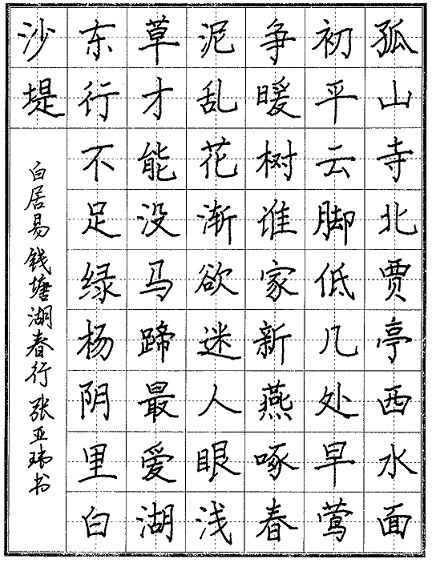 孤山寺北贾亭西水面
初平云脚低几处早莺
争暖树谁家新燕啄春
泥乱花渐欲迷人眼浅
草才能没马蹄最爱湖
东行不足绿杨阴里白
沙堤
白居易钱塘湖春行张亚玮书